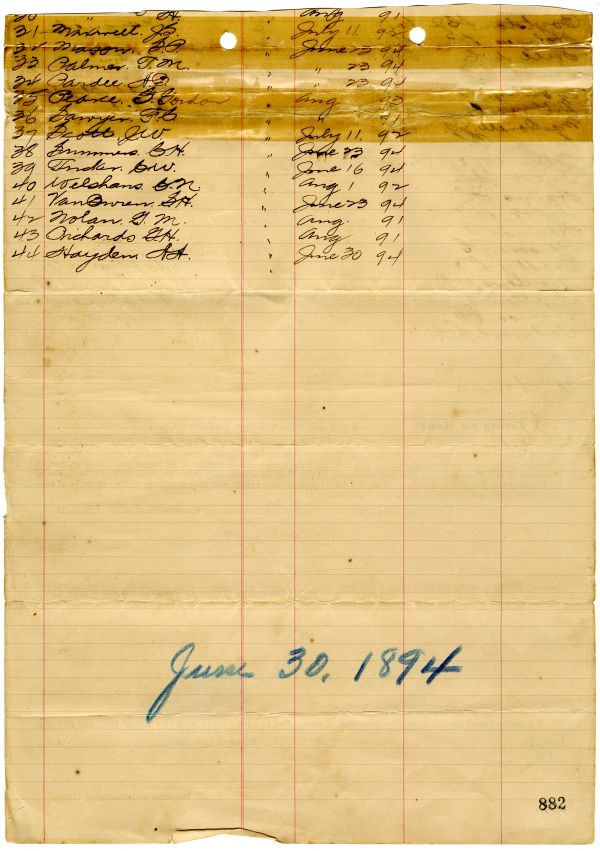 Aug 91
31 Maxwell, J.B. " July 11 92
32 Mason, B.B. " June 23 94
33 Palmer, T.M. " " 23 94
34 Pardee, A.D. " " 23 94
35 Pearce, G. Gordon " Aug
36 Sawyer, F.C " " 91
37 Scott J.W " July 11. 92
38 Summers. B.H. " June 23 94
39 Tucker, B.W. " June 16 94
40 Welshans, G.N. " Aug 1 92
41 VanBuren, G.H. " June 23 94
42 Nolan, G.M. " Aug. 91
43 Orchards G.H. " Aug 91
44 Hayden, A.A. " June 30 94
June 30, 1894
882